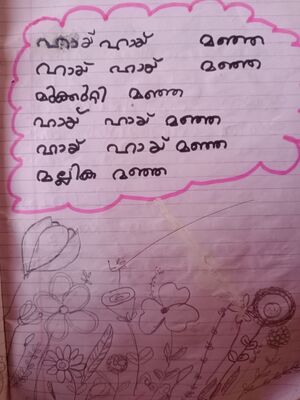 ഹായ് ഹായ് മഞ്ഞ
ഹായ് ഹായ് മഞ്ഞ
മുക്കുറ്റി മഞ്ഞ
ഹായ് ഹായ് മഞ്ഞ
ഹായ് ഹായ് മഞ്ഞ
മല്ലിക മഞ്ഞ